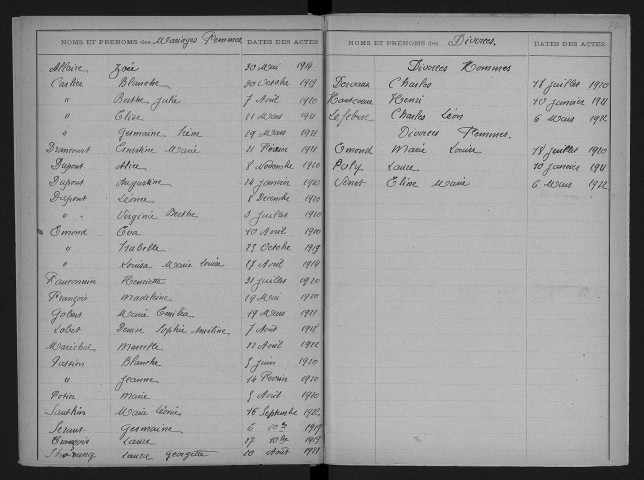 NOMS ET PRÉNOMS des Mariages Femmes DATES DES ACTES
Allaire Zoé 30 Mai 1914
Cartier Blanche 30 Octobre 1919
" Berthe Julie 7 Août 1920
" Elise 11 Mars 1921
" Germaine Irène 29 Mars 1921
Drancourt Ernestine Marie 11 Février 1921
Dupont Alice 8 Novembre 1920
Dupont Augustine 24 janvier 1920
Dupont Léonie 8 Décembre 1920
" Virginie Berthe 3 juillet 1920
Emond Eva 10 Avril 1920
" Isabelle 25 Octobre 1919
" Louisa Marie Louise 27 Avril 1914
Henriette 31 juillet 1920
François Madeleine 29 Mai 1920
Gobert Marie Emilia 19 Mars 1921
Lobet Denise Sophie 7 Août 1918
Maréchal Marcelle 22 Avril 1922
Blanche 5 juin 1920
" Jeanne 14 Février 1920
Potier Marie 5 Avril 1920
Marie Léonie 16 Septembre 1922
Germaine 6 10bre 1919
François Laure 27 10bre 1919
Laura Georgette 20 Août 1921
NOMS ET PRÉNOMS des Divorces. DATES DES ACTES
Divorces Hommes
Dorvaux Charles 18 juillet 1920
Hautcoeur Henri 10 janvier 1921
Lefebvre Charles Léon 6 Mars 1922
Divorces Femmes.
Emond Marie Louise 18 juillet 1920
Poly Laure 10 janvier 1921
Venet Eline Marie 6 Mars 1922